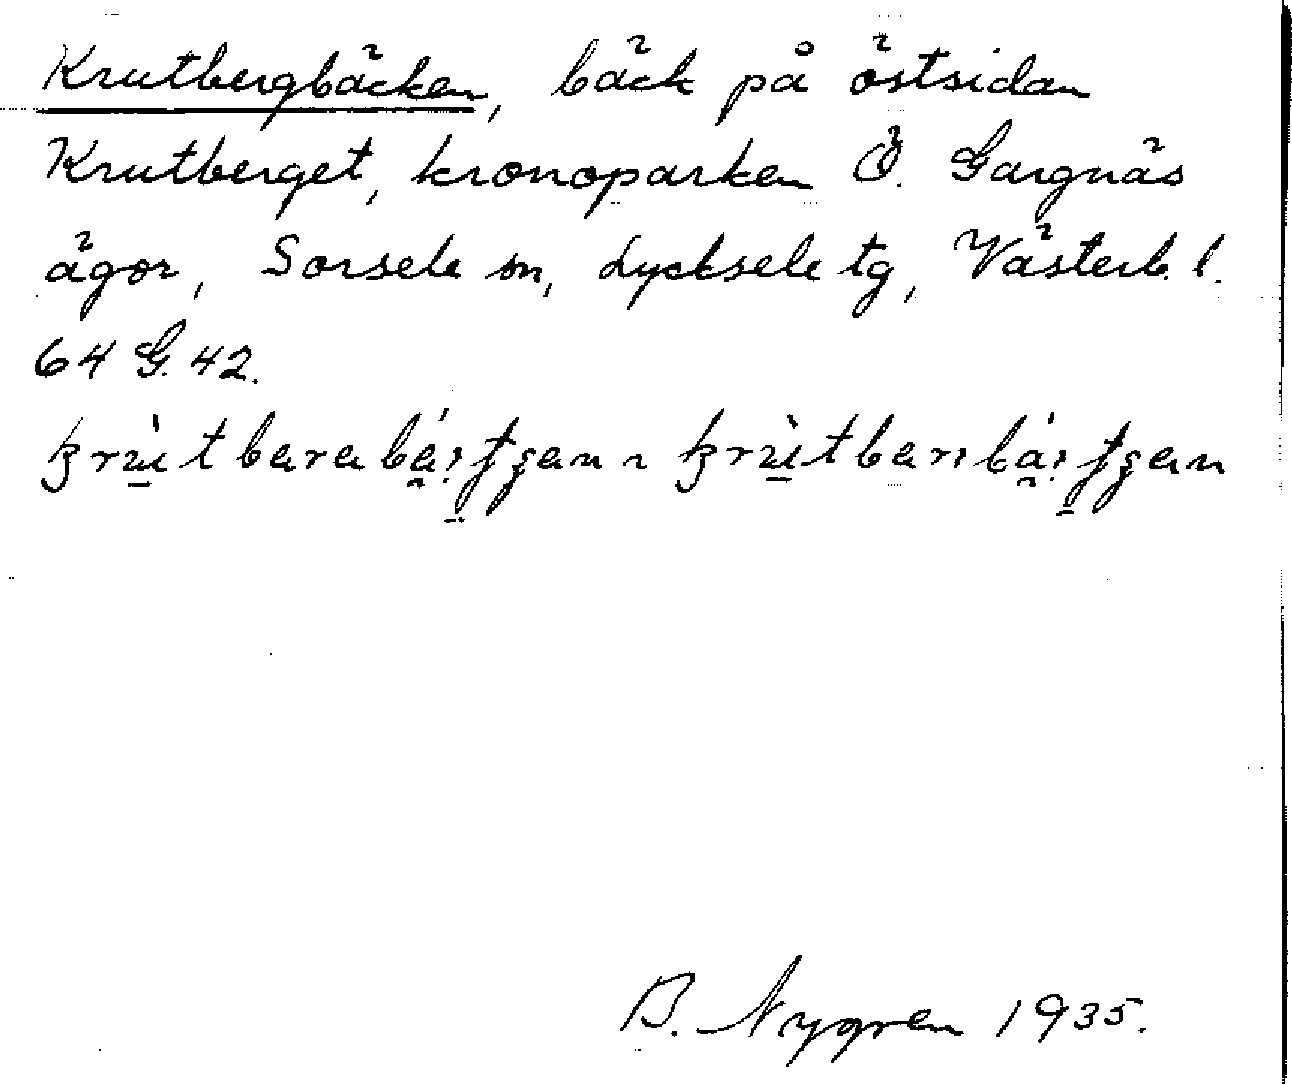 Krutbergbäcken, bäck på östsidan
Krutberget, kronoparken Ö. Gargnäs
ägor, Sorsele sn, Lycksele tg, Västerb. l.
64 G. 42.
B. Nygren 1935.